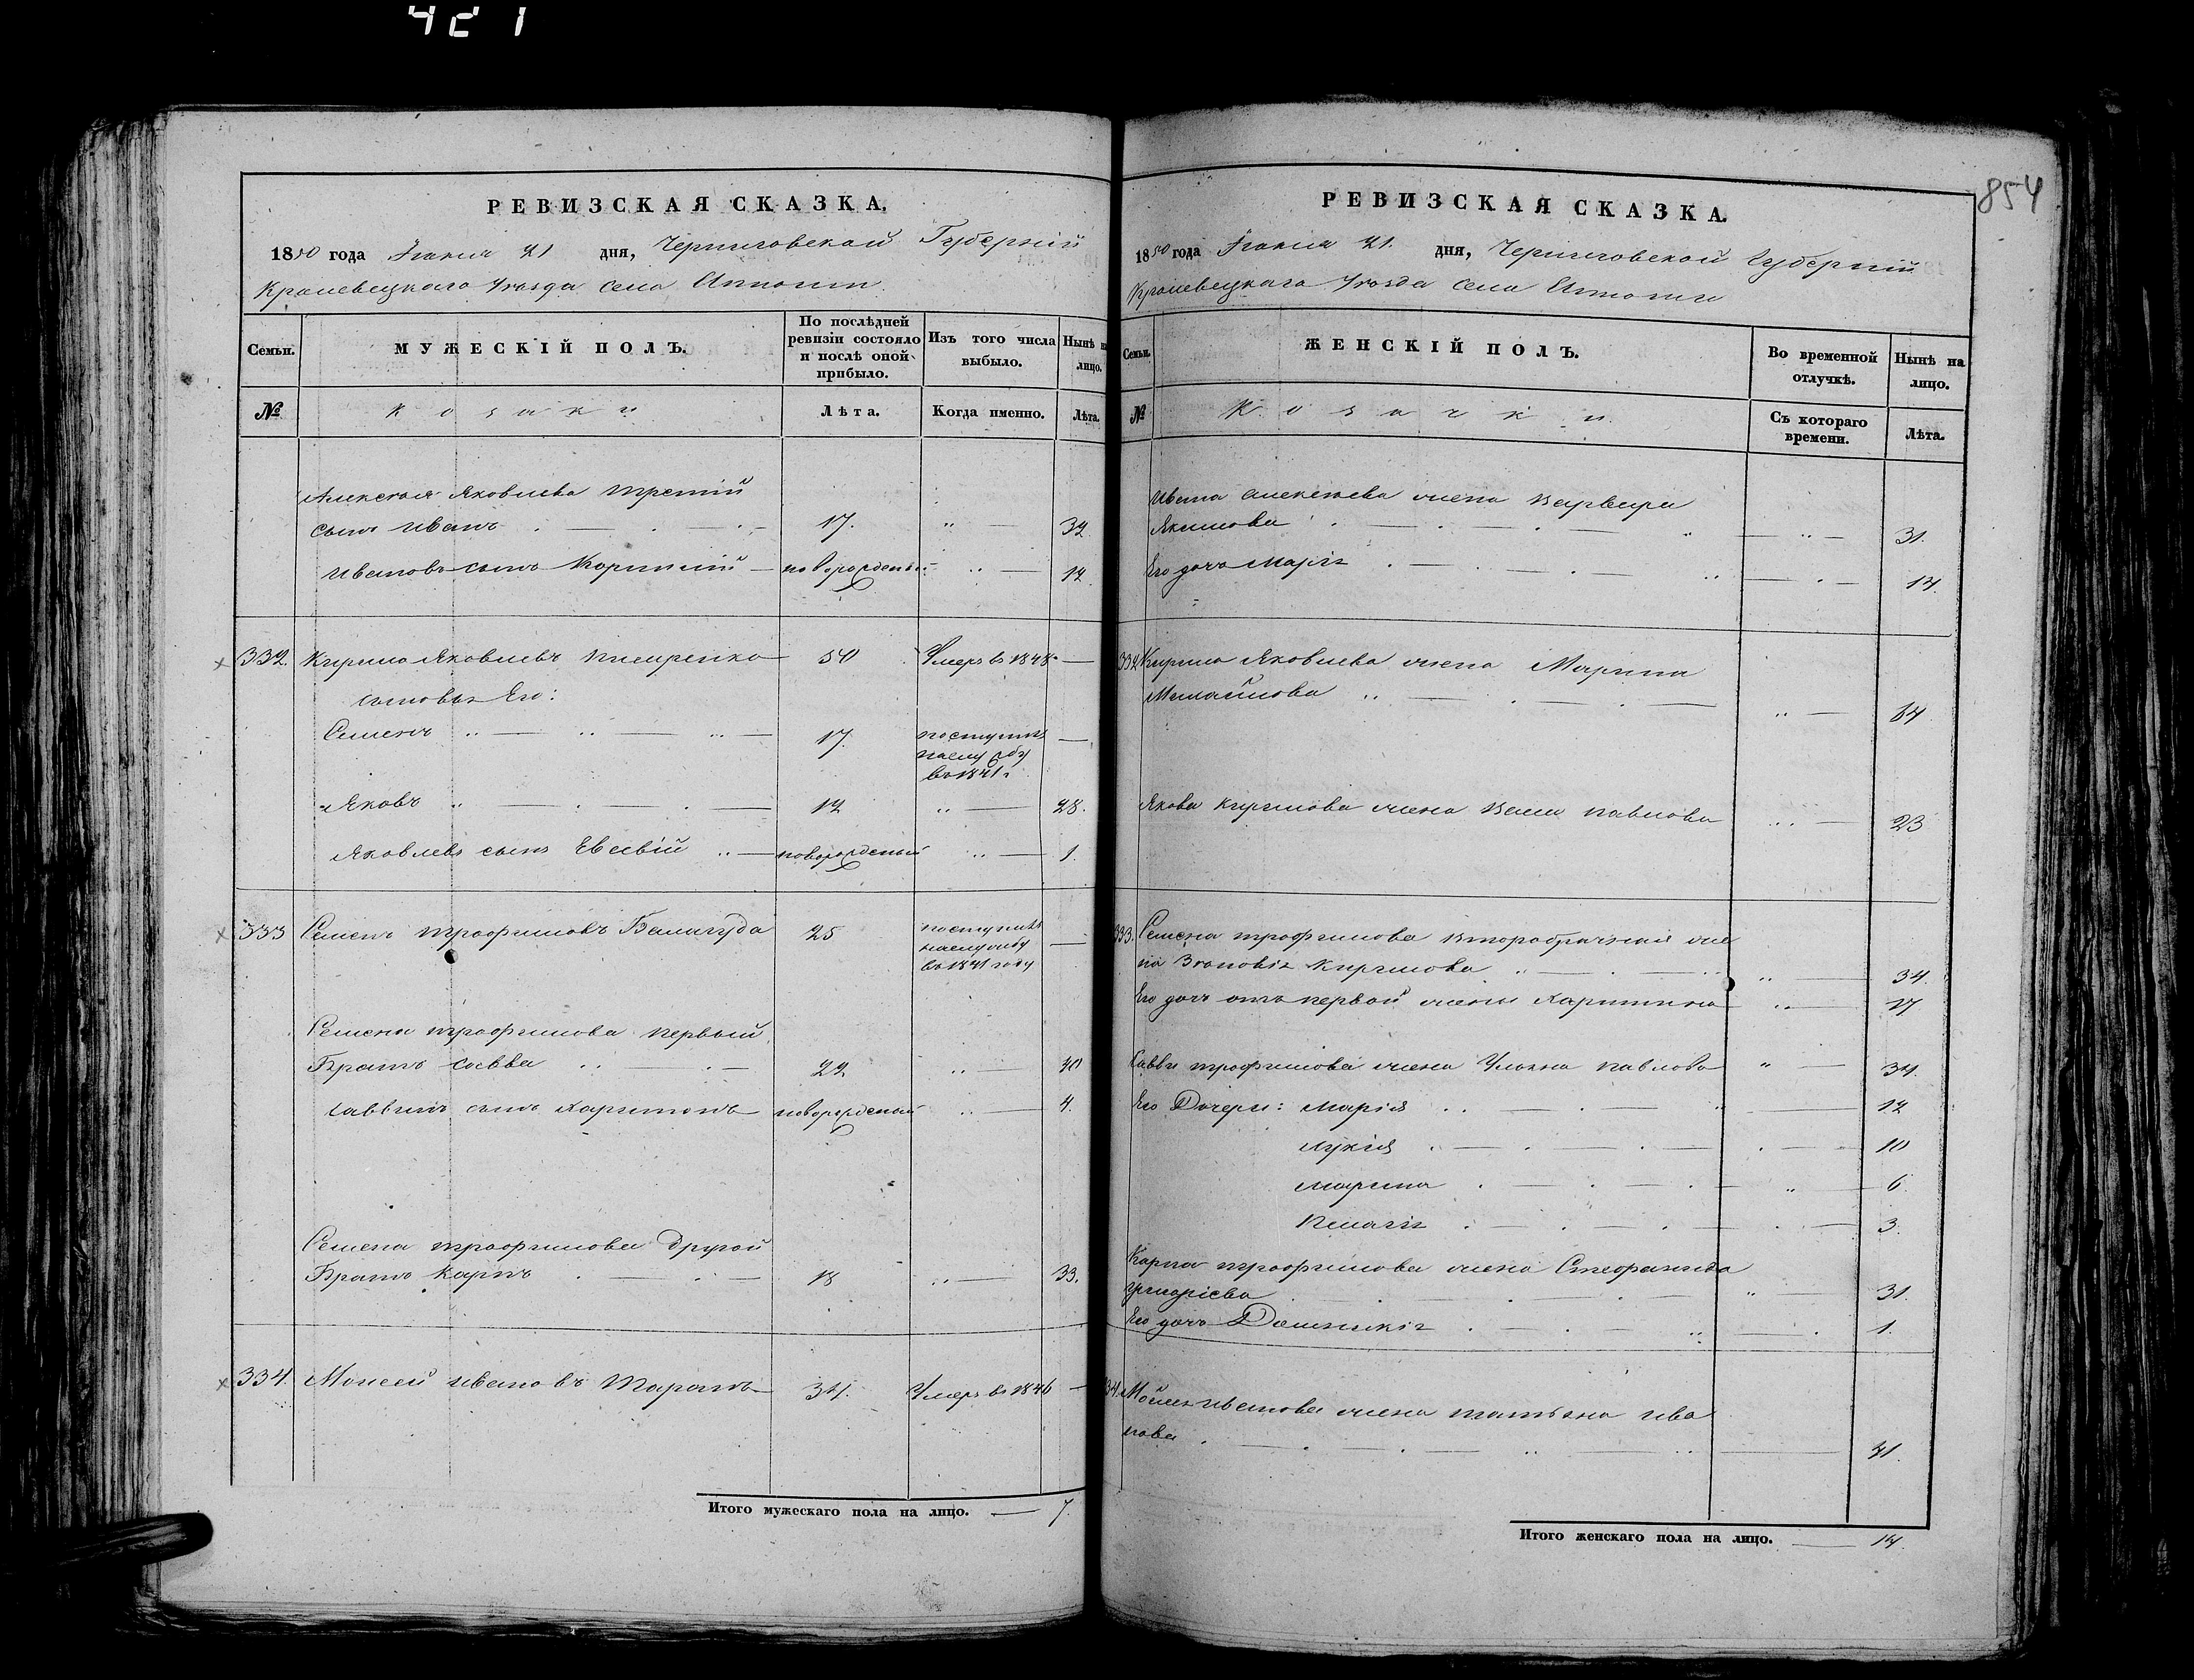 421
854
РЕВИЗСКАЯ СКАЗКА.
1850 года Іюния 21 дня, Черниговской Губерніи
Кролевецкаго уѣзда села
МУЖЕСКІЙ ПОЛЪ.
Семьи.
По послѣдней ревизіи состояло и послѣ оной прибыло.
Изъ того числа выбыло.
Нынѣ на лицо.
№
Козаки
Лѣта.
Когда именно.
Лѣта.
Алексѣя Яковлева третій
сынъ Иванъ 17. 32
Ивановъ сынъ новорожденый 12
332. Кирило Яковлевъ 50 Умеръ въ 1848
сыновья Его:
Семенъ 17. поступилъ
въ 1841
Яковъ 12 28.
Яковлевъ сынъ Евсевій новорожденый 1.
333 Семенъ Трофимовъ Балагуда 25 поступилъ
въ 1841 году
Семена Трофимова первый
Братъ Савва 22 40
Саввинъ сынъ Харитонъ новорожденый 4.
Семена Трофимова другой
Братъ Карпъ 18 33.
334. Моисей Ивановъ Таранъ 34. Умеръ въ 1846
Итого мужескаго пола на лицо. 7.
РЕВИЗСКАЯ СКАЗКА.
1850 года Іюния 21 дня, Черниговской Губерніи
Кролевецкаго уѣзда села
Семьи.
ЖЕНСКІЙ ПОЛЪ.
Во временной отлучкѣ.
Нынѣ на лицо.
№
Козачки.
Съ котораго времени.
Лѣта.
Ивана Алексѣева жена Варвара
Якимова 31.
Его дочь Марія
332 Кирила Яковлева жена Марина
Михайлова
Якова Кирилова жена Павлова 23
333. Семена Трофимова второбрачная же
на Зѣновія Кирилова 34.
Его дочь отъ первой жены Харитина 17
Саввы Трофимова жена Ульяна Павлова 34.
Его Дочери: Марія 12
Лукія 10
Марина 6.
Пелагія 3.
Карпа Трофимова жена Стефанида
Григорієва 31.
Его дочь Домникія 1.
334. Моисея Иванова жена Татьяна Ива
нова 41.
Итого женскаго пола на лицо. 14.